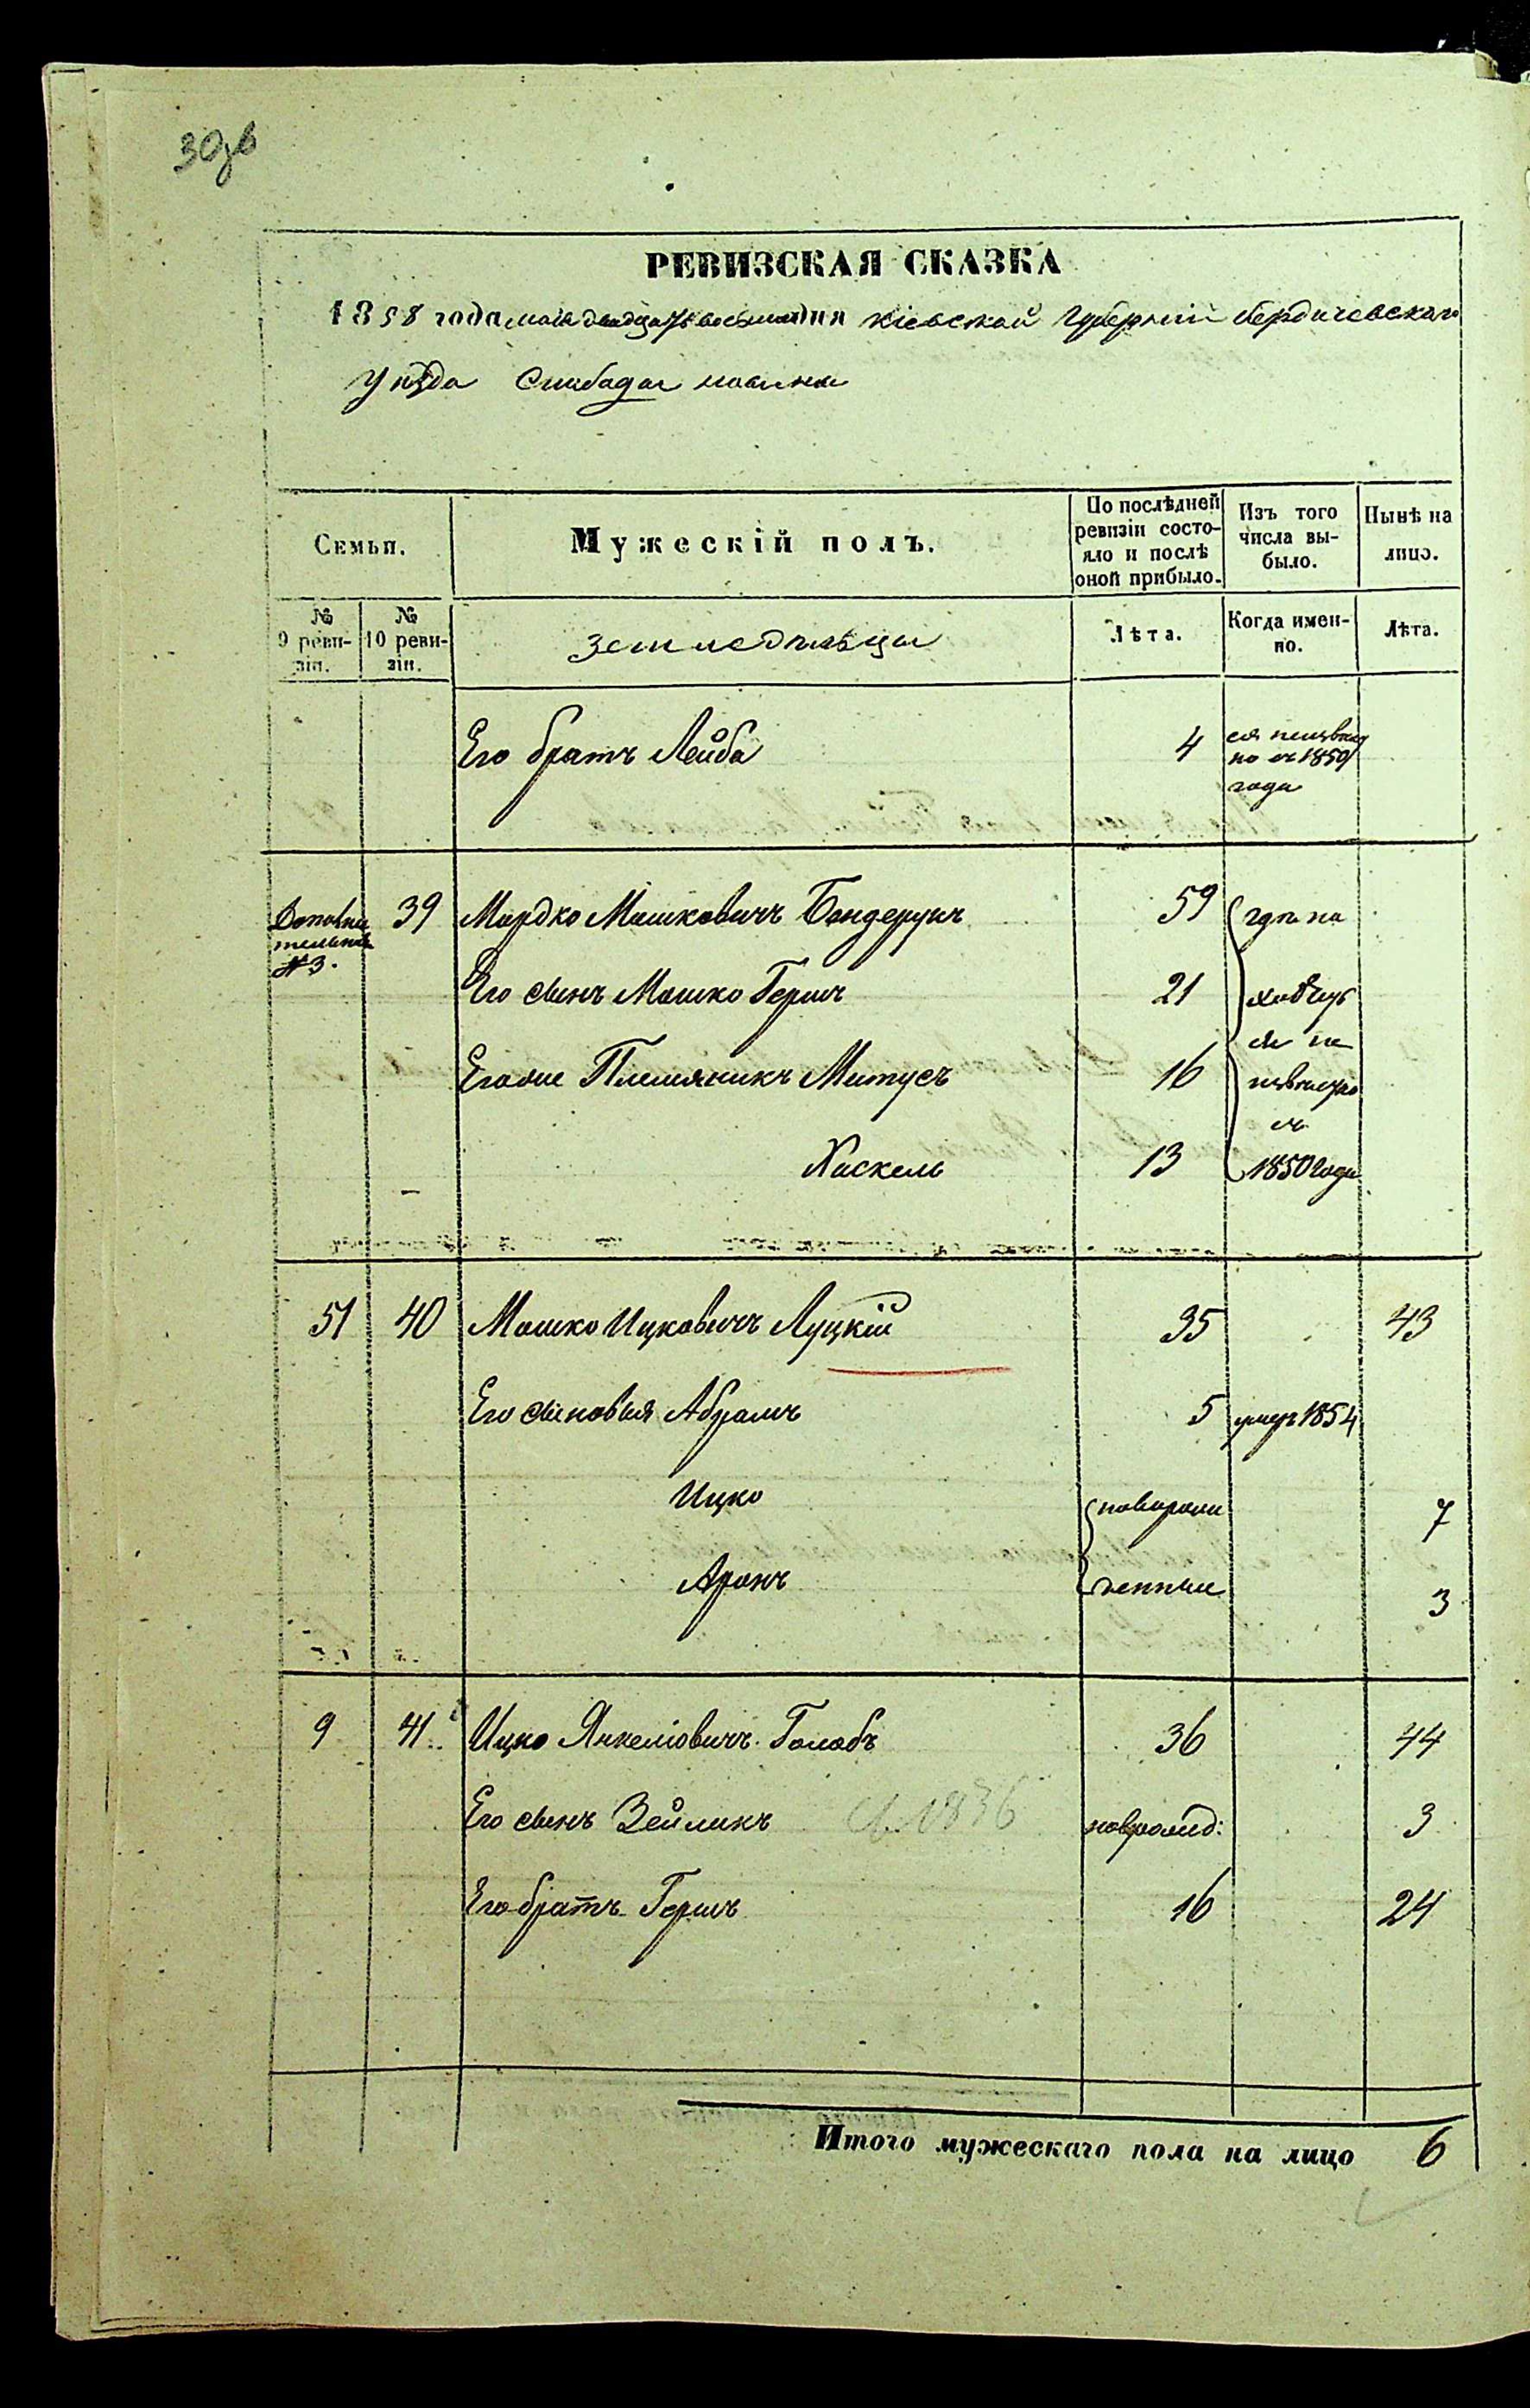 30зв
РЕВИЗСКАЯ СКАЗКА
1858 года мая двадцать восьмаго дня Кіевской Губерніи Бердичевскаго
Уѣзда Слабадаи
Семьи.
Мужескій полъ.
По послѣдней ревизіи состояло и послѣ оной прибыло.
Изъ того числа выбыло.
Нынѣ на лицо.
№ 9 ревизіи.
№ 10 ревизіи.
земледѣльцы
Лѣта.
Когда именно.
Лѣта.
Его братъ Лейба 4 ся неизвѣстно съ 1850 года
Дополнительной №3. 39 Мордко Мошковичъ 59 гдѣ на
Его сынъ Мошко Гершъ 21 ходит
ся не
Егоже Племяникъ 16 извѣстно
съ
Хаскель 13 1850 года
51 40 Мошко Ицковичъ Луцкій 35 43
Его сыновья Абрамъ 5 умеръ 1854
Ицко новорож 7
Аронъ денные 3
9 41 Ицко Янкеліовичъ Голобъ 36 44
Его сынъ Зейликъ 1836 новрожд: 3
Его братъ Гершъ 16 24
Итого мужескаго пола на лицо 6